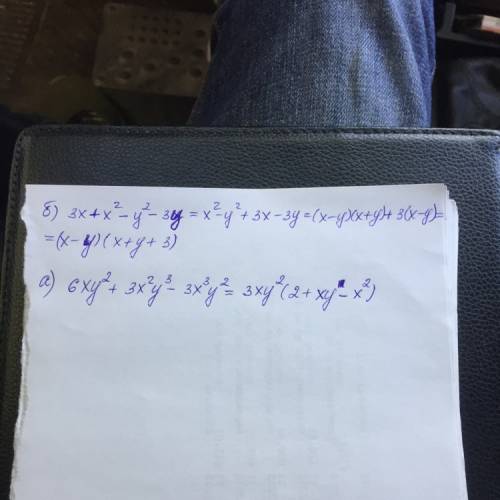 б) 3x + x² - y² - 3y = x² - y² + 3x - 3y = (x-y)(x+y) + 3(x-y) =
= (x-y)(x+y+3)
а) 6xy² + 3x²y³ - 3x³y² = 3xy²(2 + xy - x²)